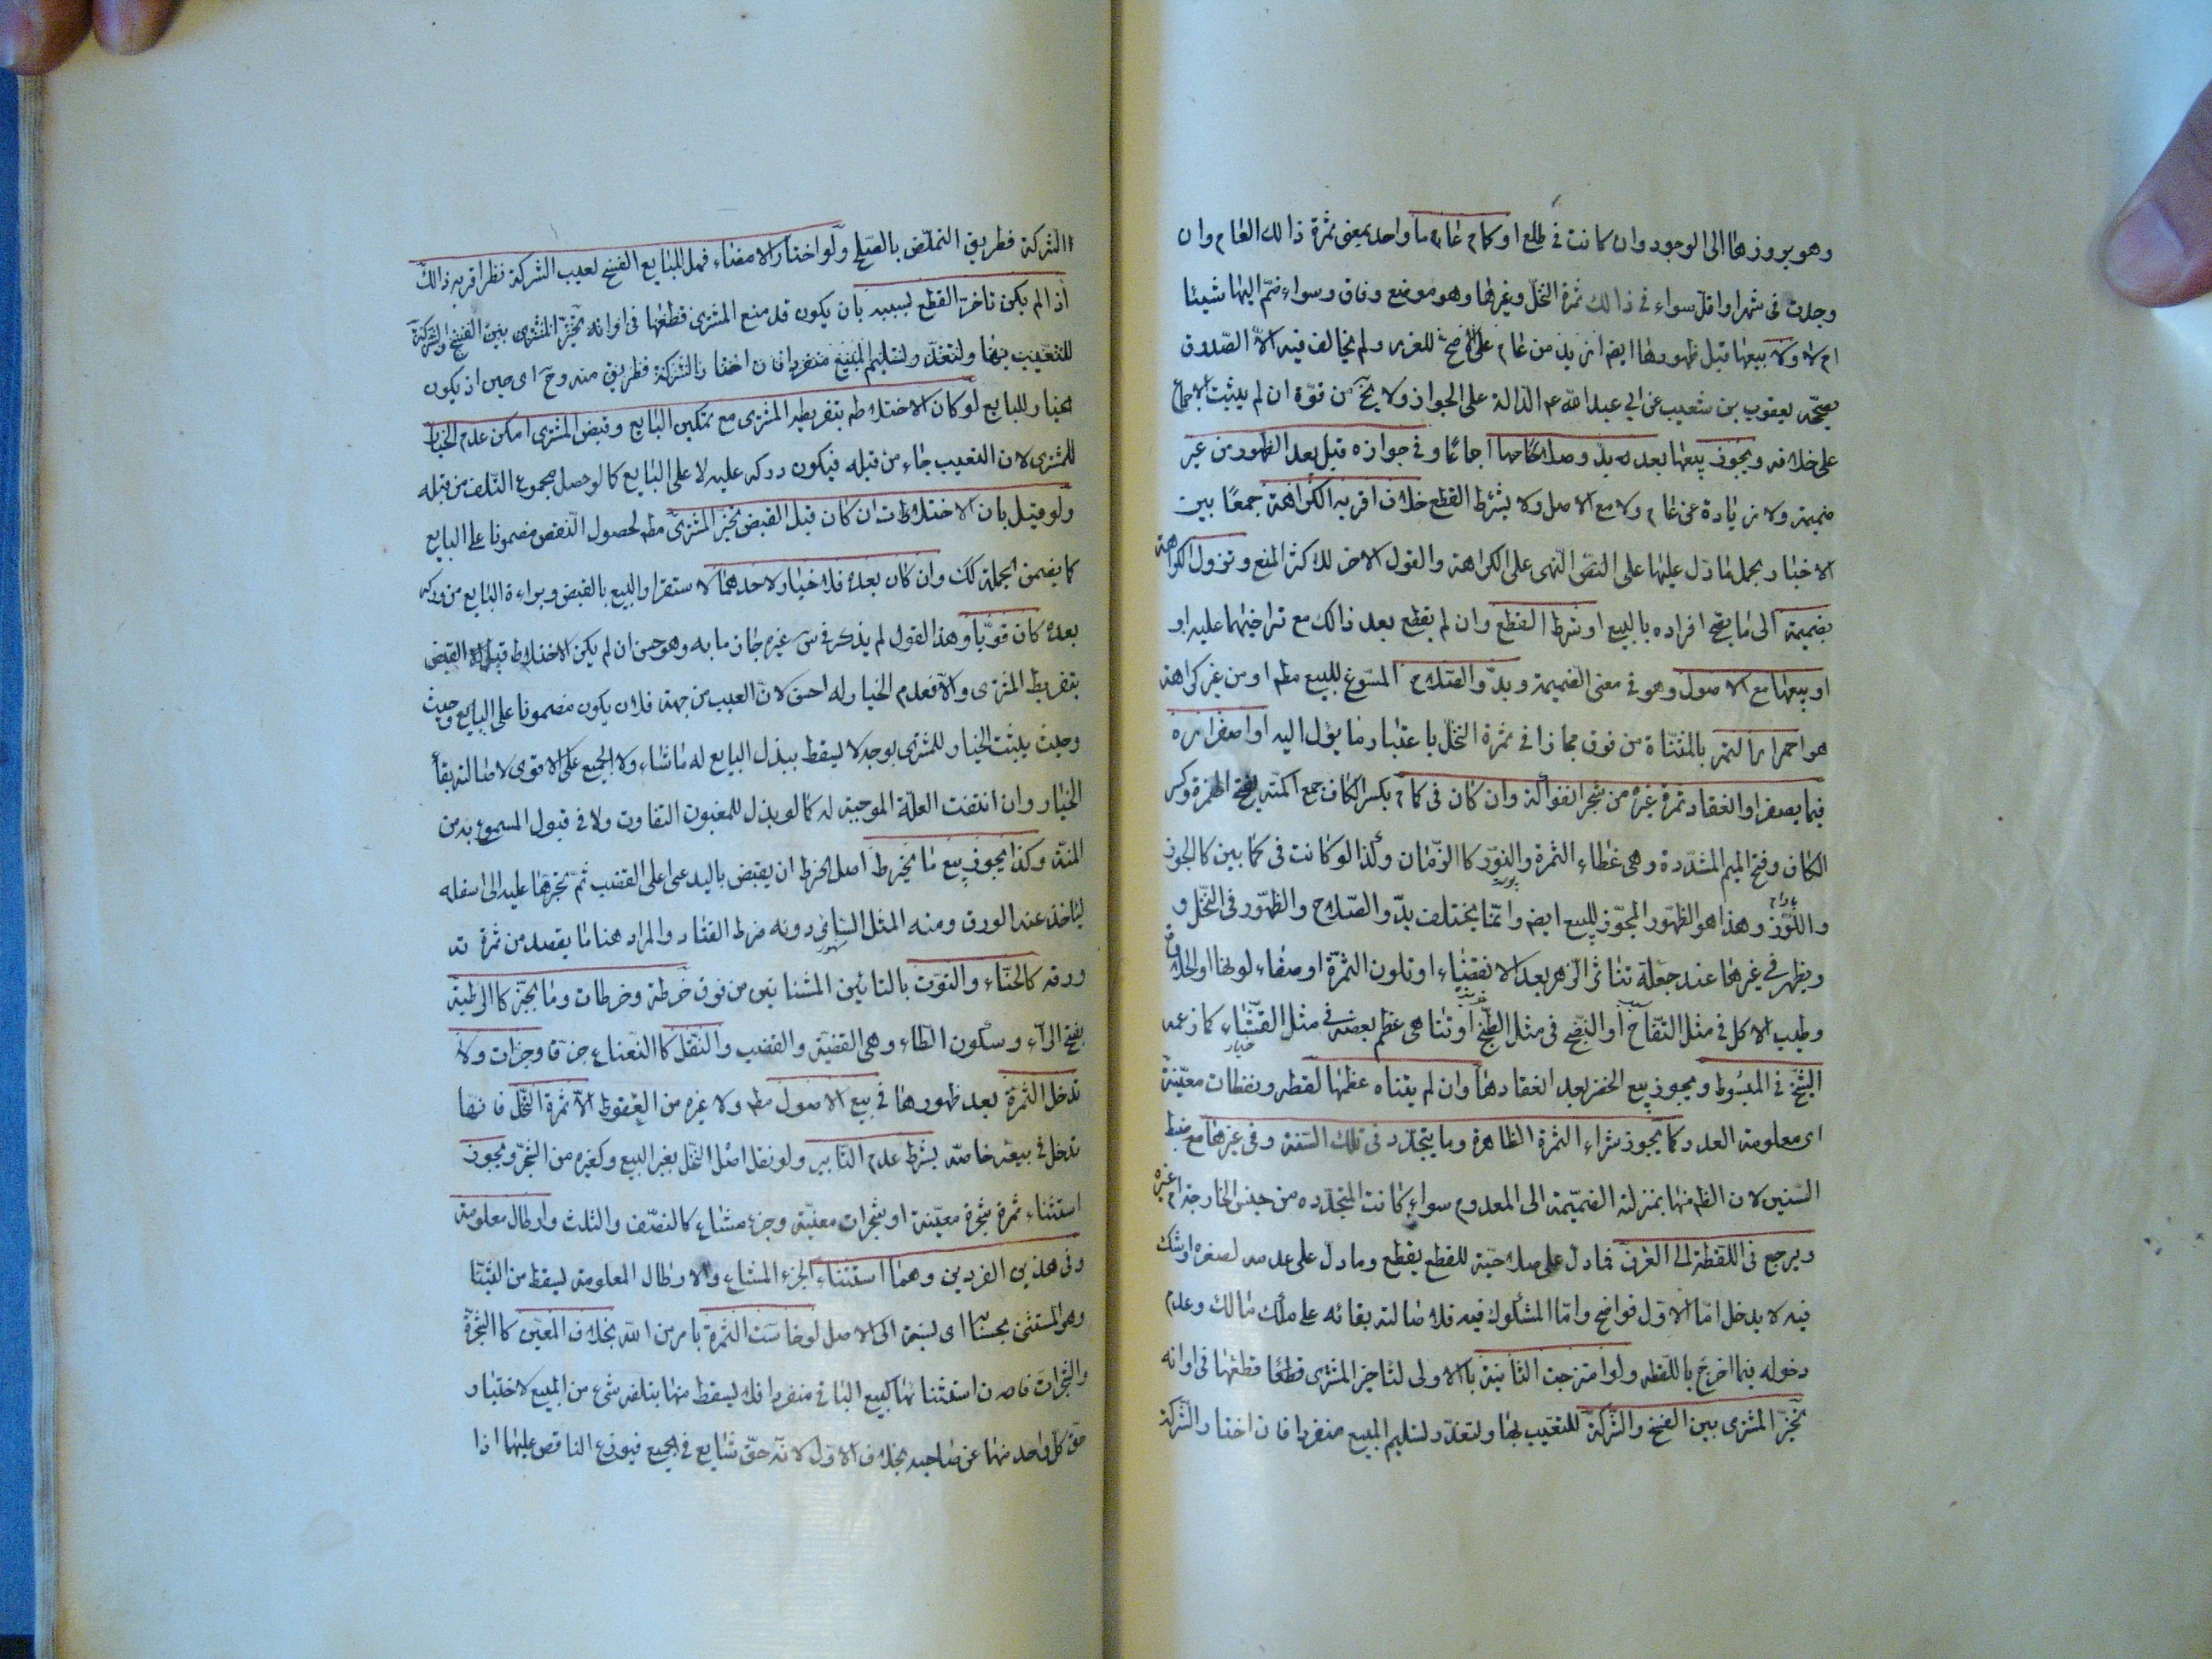 وهو بروزها الى الوجود وان كانت فى طلع او كمام عاما واحدا بمعنى ثمرة ذالك العام وان
وجدت فى شهر او اقل سواء فى ذالك ثمرة النخل وغيرها وهو موضع وفاق وسواء ضم اليها شيئا
ام لا ولا بيعها قبل ظهورها ايضا ازيد من عام على الاصح للغرر ولم يخالف فيه الا الصدوق
لصحيحة يعقوب بن شعيب عن ابي عبد الله ع الدالة على الجواز ولا يخ من قوة ان لم يثبت الاجماع
على خلافه ويجوز بيعها بعد بدو صلاحها اجماعا وفى جوازه قبل بعد الظهور من غير
ضميمة ولا زيادة عن عام ولا مع الاصل ولا بشرط القطع خلاف اقربه الكراهة جمعا بين
الاخبار بحمل ما دل عليها على النهى على الكراهة والقول الاخر للاكثر المنع وتزول الكراهة
بضميمة الى ما يصح افراده بالبيع او بشرط القطع وان لم يقطع بعد ذالك مع تراضيهما عليه او
او بيعها مع الاصول وهو فى معنى الضميمة وبدو الصلاح المسوغ للبيع مطم او من غير كراهة
هو احمرار التمر بالمثناة من فوق مجازا فى ثمرة النخل باعتبار ما يؤل اليه او اصفراره
فيما يصفر او انعقاد ثمرة غيره من شجر الفواكه وان كان فى كمام بكسر الكاف جمع اكمة بفتح الهمزة وكسر
الكاف وفتح الميم المشددة وهى غطاء الثمرة والنور كالرمان وكذا لو كانت فى كمامين كالجوز
واللوز وهذا هو الظهور المجوز للبيع ايض وانما يختلف بدو الصلاح والظهور فى النخل و
ويظهر فى غيرها عند جعله تناثر الزهر بعد الانعقاد او تلون الثمرة او صفاء لونها او الحلاوة
وطيب الاكل فى مثل التفاح او النضج فى مثل البطيخ او تناهى عظم بعضه فى مثل القثاء كما زعمه
الشيخ فى المبسوط ويجوز بيع الخضر بعد انعقادها وان لم يتناه عظمها لقطة ولقطات معينة
اى معلومة العدد كما يجوز شراء الثمرة الظاهرة وما يتجدد فى تلك السنة وفى غيرها مع ضبط
السنين لان الظ منها بمنزلة الضميمة الى المعدوم سواء كانت المتجدده من جنس الخارجة ام غيره
ويرجع فى اللقطة الى العرف فما دل على صلاحية للقطع يقطع وما دل على عدمه لصغره او شك
فيه لا يدخل اما الاول فواضح واما المشكوك فيه فلاصالة بقائه على ملك مالك وعدم
دخوله فيما اخرج باللقطه ولو امتزجت الثانية بالاولى لتاخير المشترى قطعا قطعها فى اوانه
تخير المشترى بين الفسخ والشركة للتعيب بها ولتعذر لتسليم المبيع منفردا فان اختار الشركة
الشركة فطريق التخلص بالصلح ولو اختار الامضاء فهل للبايع الفسخ لعيب الشركة نظر اقربه ذالك
اذا لم يكن تاخر القطع بسببه بان يكون قد منع المشترى قطعها فى اوانه تخير المشترى بين الفسخ والشركة
للتعييب بها ولتعذر ولتسليم المبيع منفردا فان اختار الشركة فطريق منه وح اى حين اذ يكون
الخيار للبايع لو كان الاختلاط بتفريط المشترى مع تمكين البايع وقبض المشترى امكن عدم الخيار
للمشترى لان التعيب جاء من قبله فيكون دركه عليه لا على البايع كما لو حصل مجموع التلف من قبله
ولو قيل بان الاختلاط ان كان قبل القبض تخير المشترى مطم لحصول النقص مضمونا على البايع
كما يضمن الجملة كك وان كان بعده فلا خيار لاحدهما لاستقرار البيع بالقبض وبراءة البايع من دركه
بعده كان قويا وهذا القول لم يذكر فى س غيره جازما به وهو حسن ان لم يكن الاختلاط قبل القبض
بتفريط المشترى والا فعدم الخيار له احسن لان العيب من جهته فلا يكون مضمونا على البايع وحيث
وحيث يثبت الخيار للمشترى بوجه لا يسقط ببذل البايع له ما شاء ولا الجميع على الاقوى لاصالة بقا
الخيار وان انتفت العلة الموجبة له كما لو بذل للمغبون التفاوت ولا فى قبول المسموع به من
المنة وكذا يجوز بيع ما يخرط اصل الخرط ان يقبض باليد على اعلى القضيب ثم تجرها عليه الى اسفله
لياخذ عنه الورق ومنه المثل السائر دونه خرط القتاد والمراد هنا ما يقصد من ثمرة تد
ورقه كالحناء والتوت بالتائين المثناتين من فوق خرطة وخرطات وما يجز كالرطبة
بفتح الراء وسكون الطاء وهى القضبة والقضب والبقل كالنعناع جزة وجزات ولا
تدخل الثمرة بعد ظهورها فى بيع الاصول مطم ولا غيره من العقود الا ثمرة النخل فانها
تدخل فى بيعه خاصة بشرط عدم التابير ولو نقل اصل النخل بغير البيع وكغيره من الشجر ويجوز
استثناء ثمرة شجرة معينة او شجرات معينة وجزء مشاع كالنصف والثلث وارطال معلومة
وفى هذين الفردين وهما استثناء الجزء المشاع والارطال المعلومة يسقط من الثنيا
وهو المستثنى بحسابه اى نسبة الى الاصل لو خاست الثمرة بامر من الله بخلاف المعين كالشجرة
والشجرات فان استثنائها كبيع الباقى منفردا فلا يسقط منها بتلف شىء من المبيع لاختيار
حق كل واحد منها عن صاحبه بخلاف الاول لانه حق شايع فى الجميع فيوزع الناقص عليها اذا